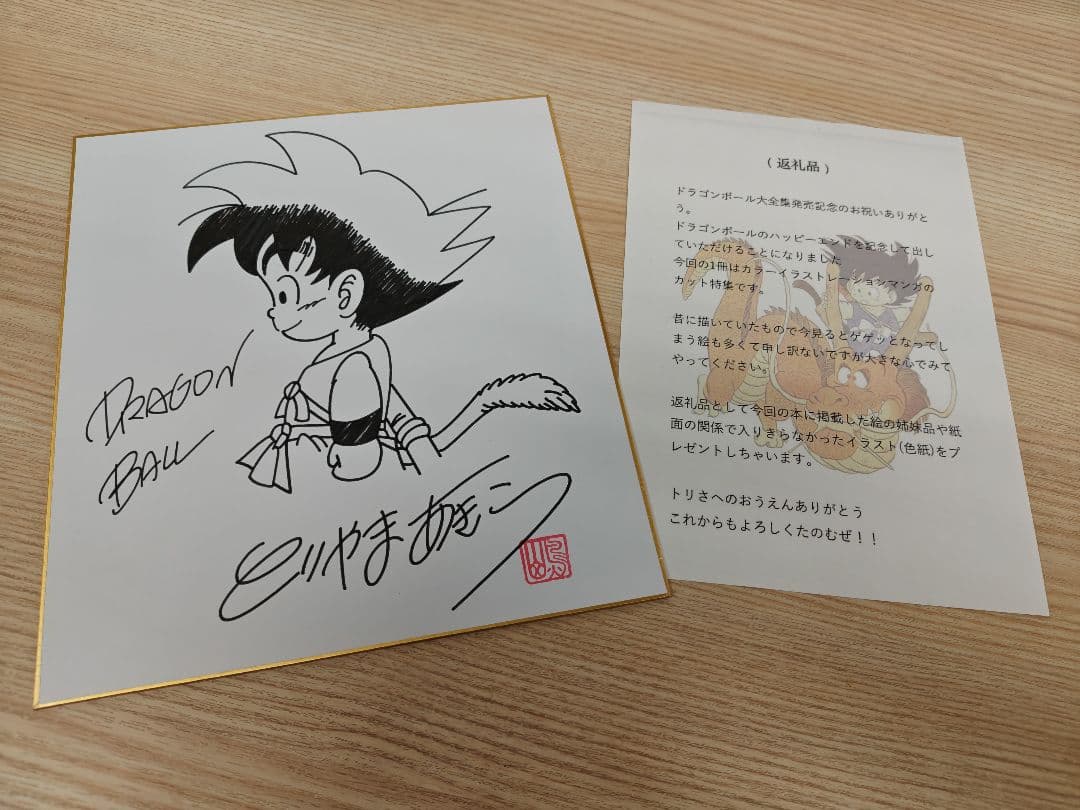 DRAGON
BALL
とりやまあきら
(返礼品)
ドラゴンボール大全集発売記念のお祝いありがと
う。
ドラゴンボールのハッピーエンドを記念して出し
ていただけることになりました
今回の1冊はカラーイラストレーションマンガの
カット特集です。
昔に描いていたもので今見るとゲゲッとなってし
まう絵も多くて申し訳ないですが大きな心でみて
やってください。
返礼品として今回の本に掲載した絵の姉妹品や紙
面の関係で入りきらなかったイラスト(色紙)をプ
レゼントしちゃいます。
トリさへのおうえんありがとう
これからもよろしくたのむぜ！！